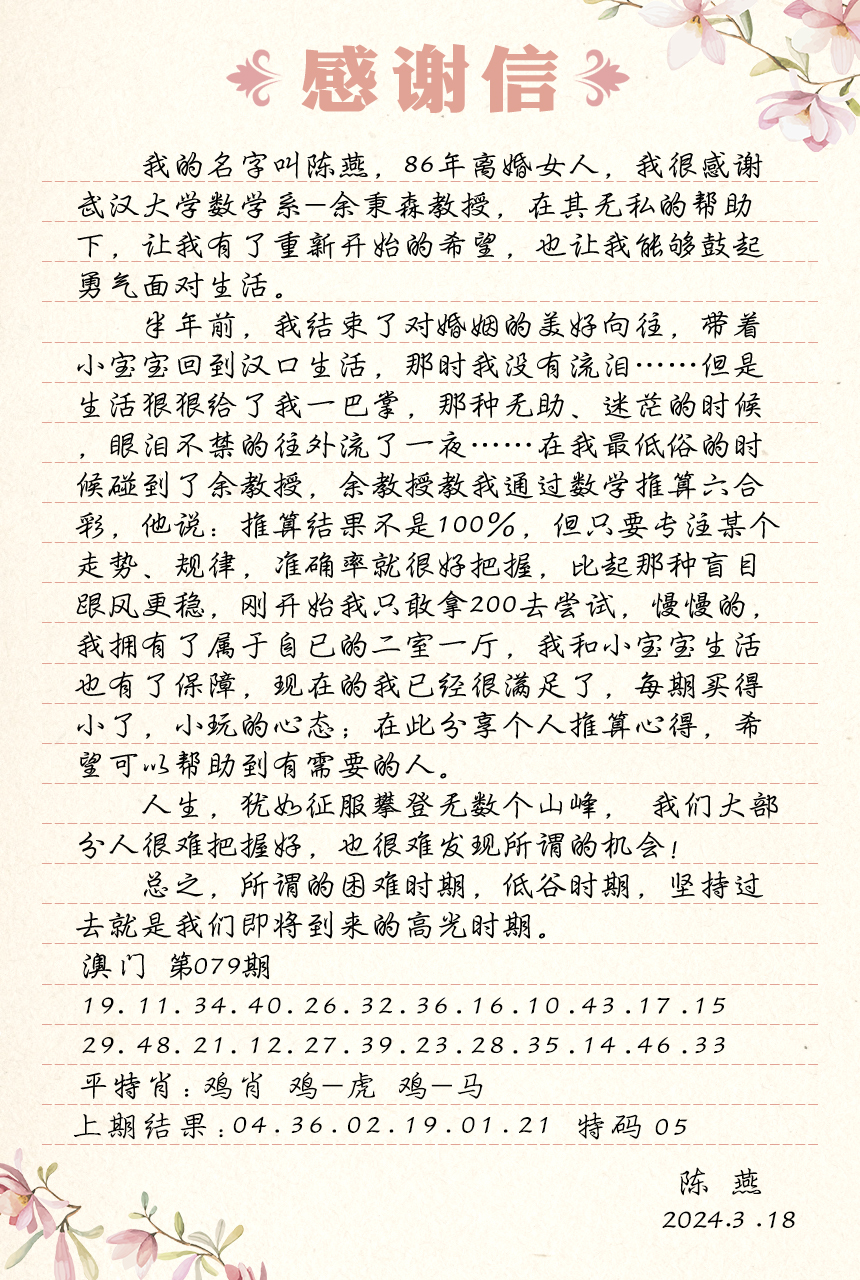 感谢信
我的名字叫陈燕，86年离婚女人，我很感谢
武汉大学数学系—余秉森教授，在其无私的帮助
下，让我有了重新开始的希望，也让我能够鼓起
勇气面对生活。
半年前，我结束了对婚姻的美好向往，带着
小宝宝回到汉口生活，那时我没有流泪……但是
生活狠狠给了我一巴掌，那种无助、迷茫的时候
，眼泪不禁的往外流了一夜……在我最低俗的时
候碰到了余教授，余教授教我通过数学推算六合
彩，他说：推算结果不是100%，但只要专注某个
走势、规律，准确率就很好把握，比起那种盲目
跟风更稳，刚开始我只敢拿200去尝试，慢慢的，
我拥有了属于自已的二室一厅，我和小宝宝生活
也有了保障，现在的我已经很满足了，每期买得
小了，小玩的心态；在此分享个人推算心得，希
望可以帮助到有需要的人。
人生，犹如征服攀登无数个山峰， 我们大部
分人很难把握好，也很难发现所谓的机会！
总之，所谓的困难时期，低谷时期，坚持过
去就是我们即将到来的高光时期。
澳门 第079期
19.11.34.40.26.32.36.16.10.43.17.15
29.48.21.12.27.39.23.28.35.14.46.33
平特肖：鸡肖 鸡—虎 鸡—马
上期结果：04.36.02.19.01.21 特码 05
陈 燕
2024.3.18